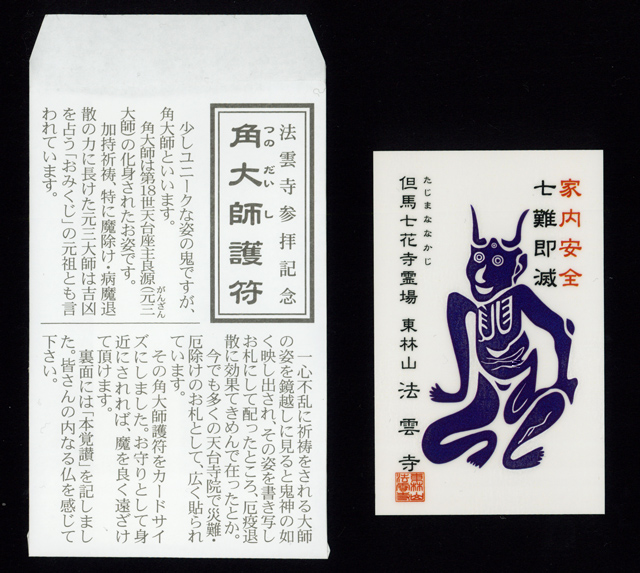 法雲寺参拝記念
角大師護符
つの だい し
少しユニークな姿の鬼ですが、
角大師といいます。
角大師は第18世天台座主良源(元三
がんざん
大師)の化身されたお姿です。
加持祈祷、特に魔除け・病魔退
散の力に長けた元三大師は吉凶
を占う「おみくじ」の元祖とも言
われています。
一心不乱に祈祷をされる大師
の姿を鏡越しに見ると鬼神の如
く映し出され、その姿を書き写し
お札にして配ったところ、厄疫退
散に効果てきめんで在ったとか。
今でも多くの天台寺院で災難・
厄除けのお札として、広く貼られ
ています。
その角大師護符をカードサイ
ズにしました。お守りとして身
近にされれば、魔を良く遠ざけ
て頂けます。
裏面には「本覚讃」を記しまし
た。皆さんの内なる仏を感じて
下さい。
家内安全
七難即滅
たじまななかじ
但馬七花寺霊場 東林山 法雲寺